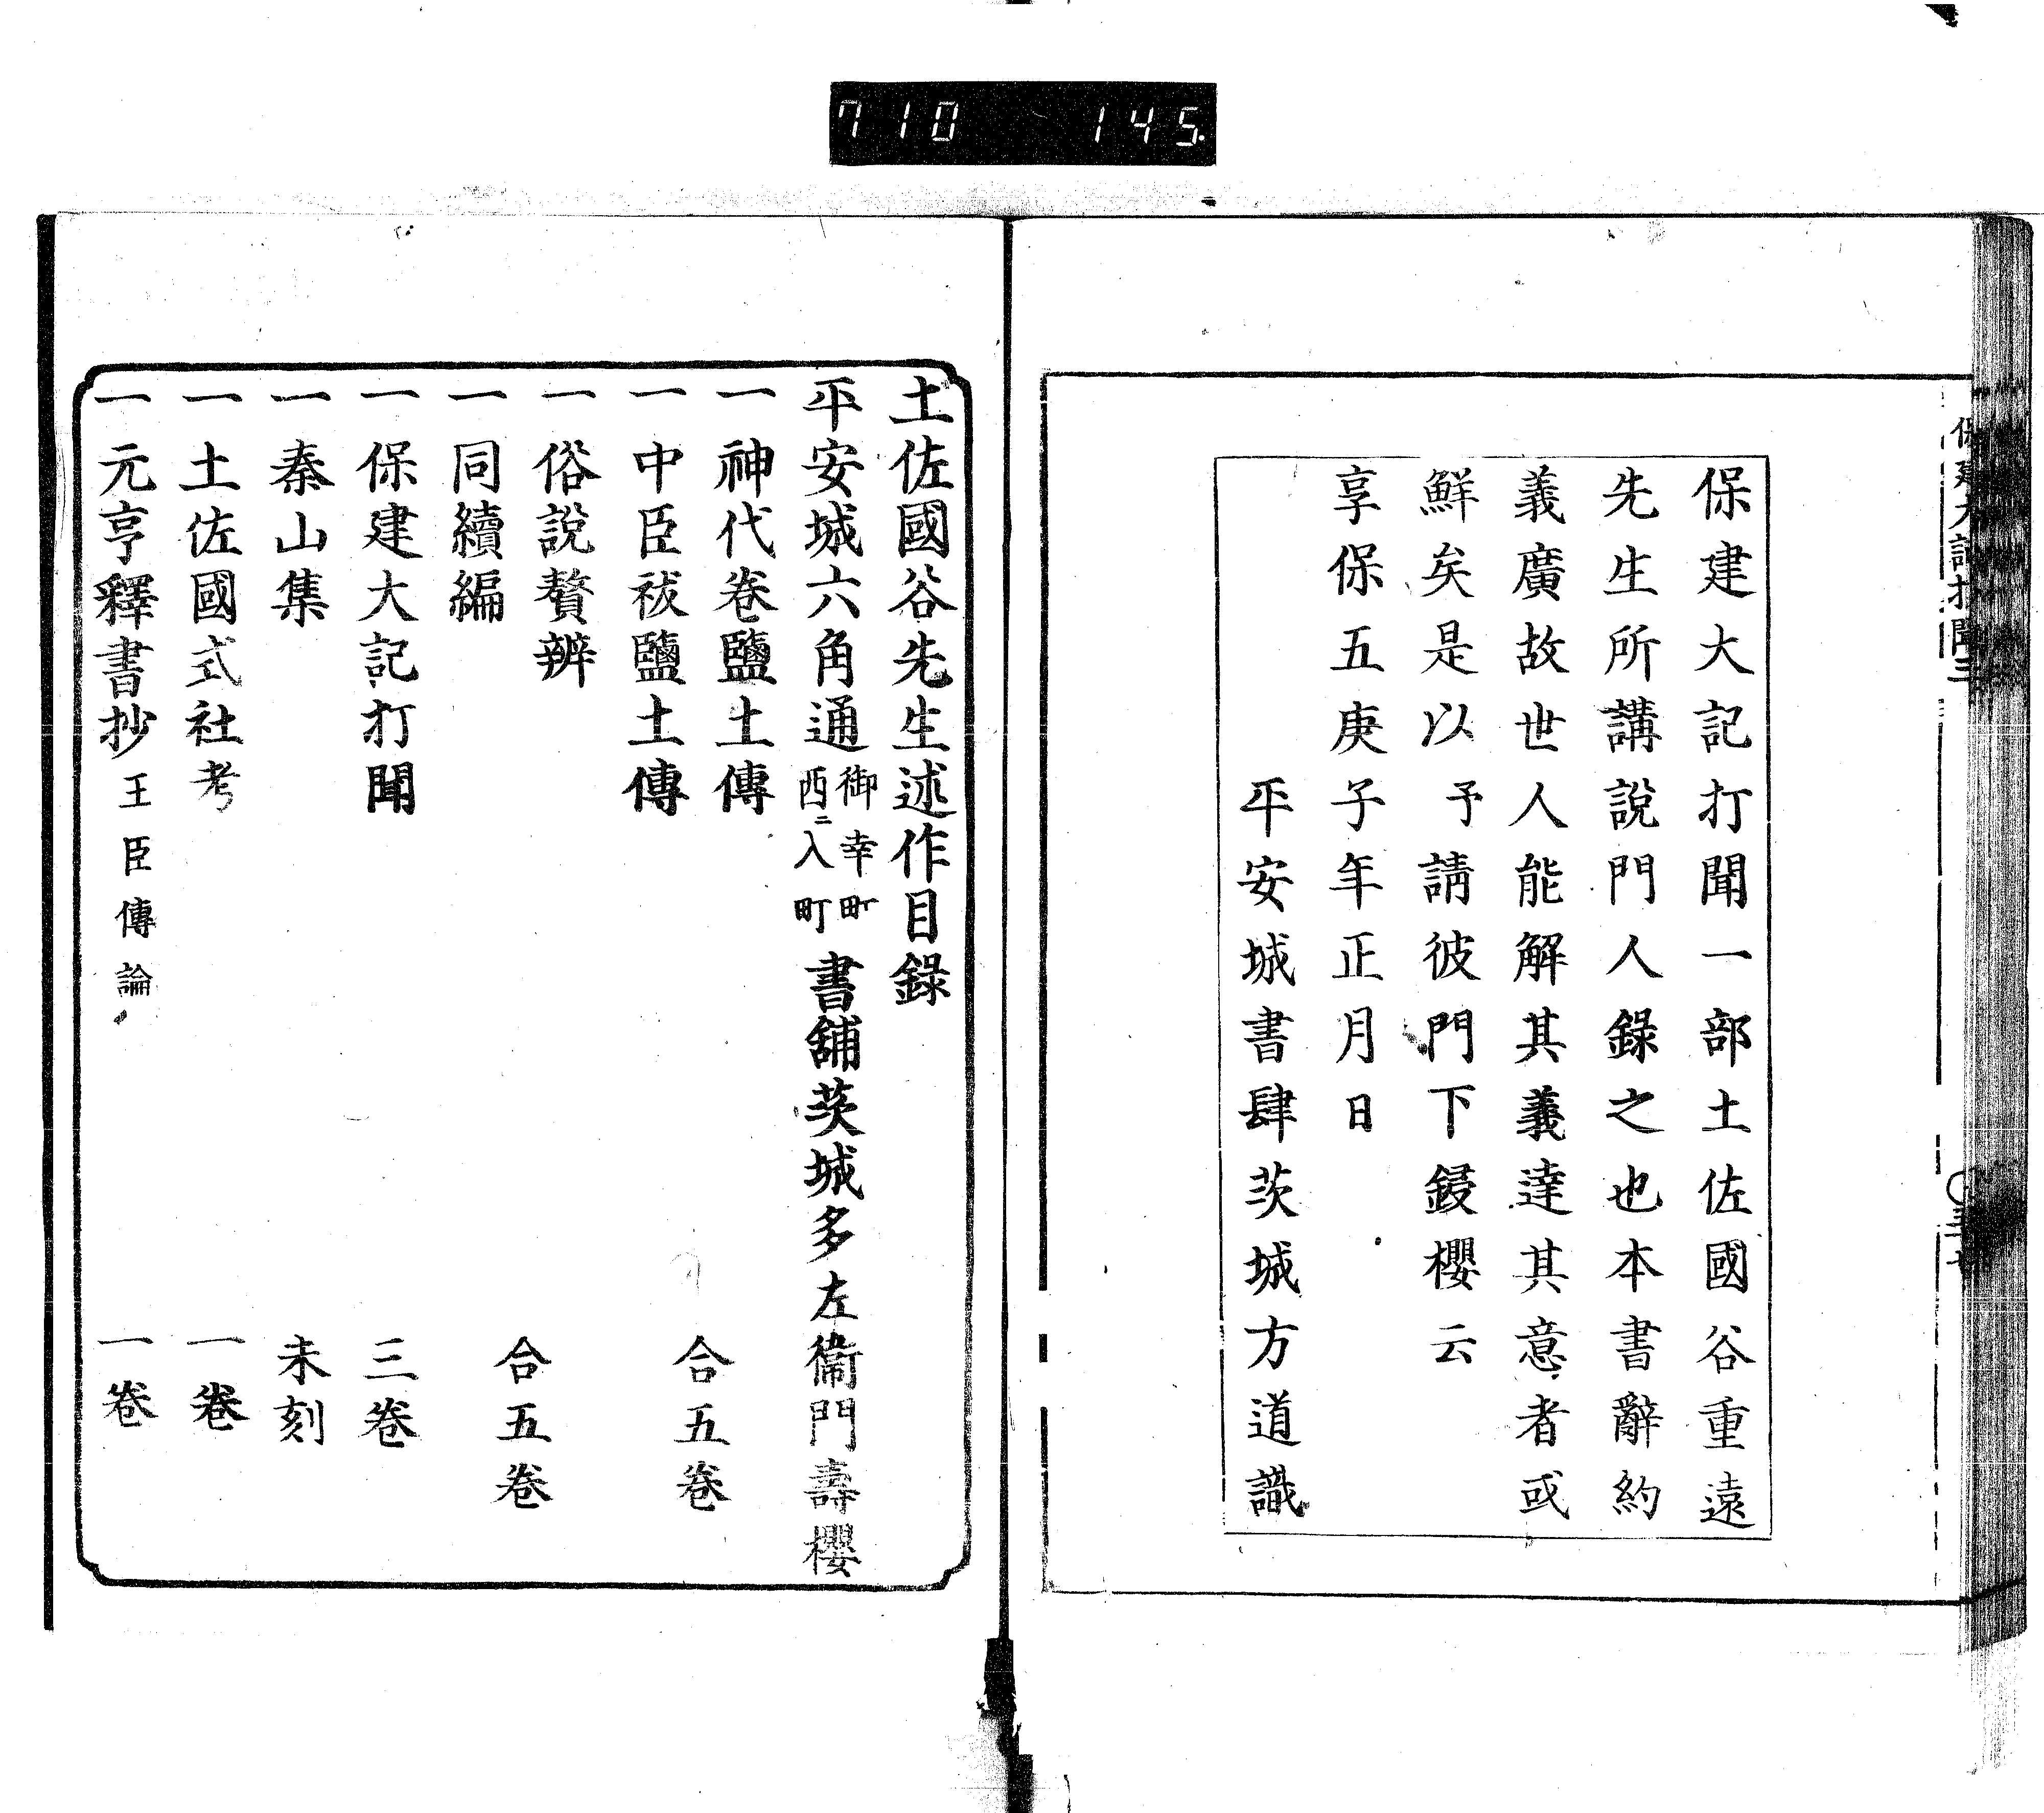 710 145
保建大記打聞三
保建大記打聞一部土佐國谷重遠
先生所講說門人錄之也本書辭約
義廣故世人能解其義達其意者或
鮮矣是以予請彼門下鋟櫻云
享保五庚子年正月日
平安城書肆茨城方道識
土佐國谷先生述作目錄
平安城六角通御幸町西ニ入町書舖茨城多左衞門壽櫻
一神代卷鹽土傳
一中臣祓鹽土傳
合五卷
一俗說贅辨
一同續編
合五卷
一保建大記打聞 三卷
一秦山集 未刻
一土佐國式社考 一卷
一元亨釋書抄王臣傳論 一卷